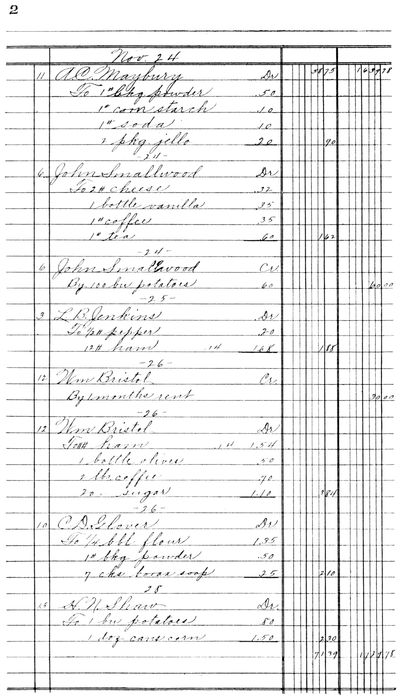 2
Nov. 24 58 75 1639 78
11 A.C. Maybury Dr
To 1# bkg powder .50
1# corn starch .10
1# soda 10
2 pkg. jello 20 90
-24-
6 John Smallwood Dr
To 2# cheese .32
1 bottle vanilla .35
1# coffee 35
1# tea 60 162
-24-
6 John Smallwood Cr.
By 100 bu potatoes 60 60.00
-25-
3 L.B. Jenkins Dr
To ½# pepper 20
12# ham .14 1.68 188
-26-
12 Wm Bristol Cr.
By 1 months rent 30.00
-26-
12 Wm Bristol Dr
ham .14 1.54
1 bottle olives .50
2 lb. coffee .70
20 " sugar 1.10 384
-26-
10 C.D. Glover Dr
To ¼ bbl flour 1.35
1# bkg powder .50
7 cks borax soap .25 210
28
15 H.N. Shaw Dr.
To 1 bu potatoes 80
1 doz cans corn 1.50 230
71 39 1729.78